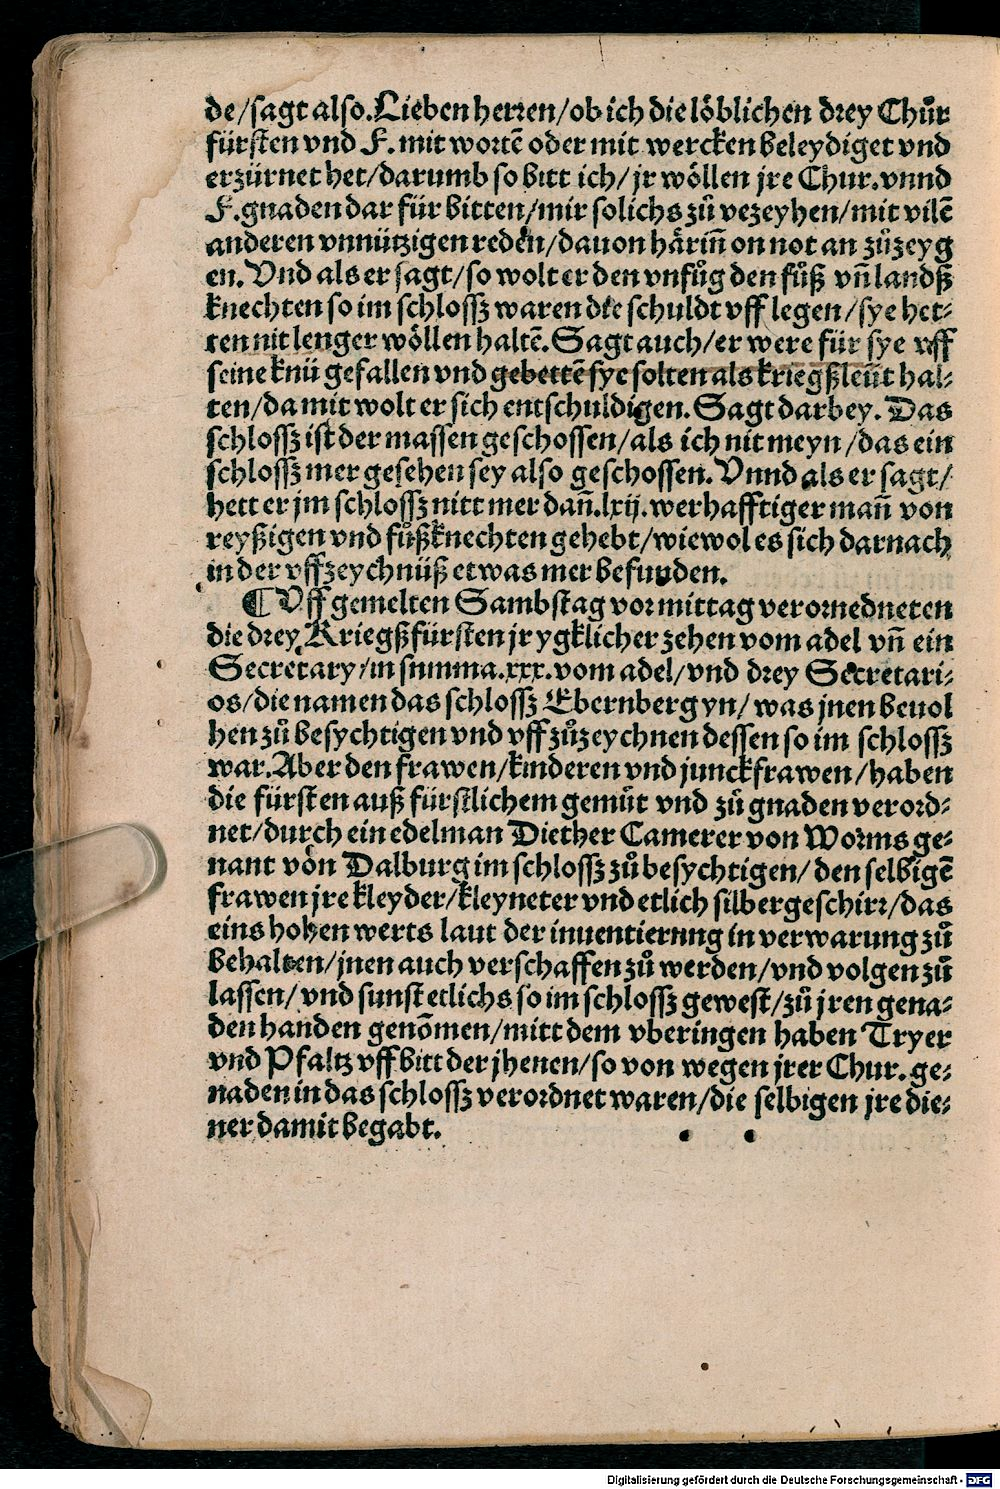 de/sagt also. Lieben herren/ob ich die löblichen drey Chůr
fürsten vnd F. mit wortē oder mit wercken beleydiget vnd
erzürnet het/darumb so bitt ich/jr wöllen jre Chur. vnnd
F. gnaden dar für bitten/mir solichs zů vezeyhen/mit vilē
anderen vnnützigen reden/dauon härin̄ on not an zůzeyg
en. Vnd als er sagt/so wolt er den vnfůg den fůß vn̄ landß
knechten so im schlossz waren die schuldt vff legen/sye het-
ten nit lenger wöllen haltē. Sagt auch/er were für sye vff
seine knü gefallen vnd gebettē sye solten als kriegßleüt hal-
ten/da mit wolt er sich entschuldigen. Sagt darbey. Das
schlossz ist der massen geschossen/als ich nit meyn/das ein
schlossz mer gesehen sey also geschossen. Vnnd als er sagt/
hett er jm schlossz nitt mer dan̄. lxij. werhafftiger man̄ von
reyßigen vnd fůßknechten gehebt/wiewol es sich darnach
in der vffzeychnüß etwas mer befunden.
¶ Vff gemelten Sambstag vor mittag verornedneten
die drey Kriegßfürsten jr ygklicher zehen vom adel vn̄ ein
Secretary/in snmma. xxx. vom adel/vnd drey Secretari-
os/die namen das schlossz Ebernberg yn/was jnen beuol
hen zů besychtigen vnd vff zůzeychnen dessen so im schlossz
war. Aber den frawen/kinderen vnd junckfrawen/haben
die fürsten auß fürstlichem gemůt vnd zů gnaden verord-
net/durch ein edelman Diether Camerer von Worms ge-
nant von Dalburg im schlossz zů besychtigen/den selbigē
frawen jre kleyder/kleyneter vnd etlich silbergeschirr/das
eins hohen werts laut der inuentiernng in verwarung zů
behalten/jnen auch verschaffen zů werden/vnd volgen zů
lassen/vnd sunst etlichs so im schlossz gewest/zů jren gena-
den handen genōmen/mitt dem vberingen haben Tryer
vnd Pfaltz vff bitt der jhenen/so von wegen jrer Chur. ge-
naden in das schlossz verordnet waren/die selbigen jre die-
ner damit begabt.
Digitalisierung gefördert durch die Deutsche Forschungsgemeinschaft - DFG